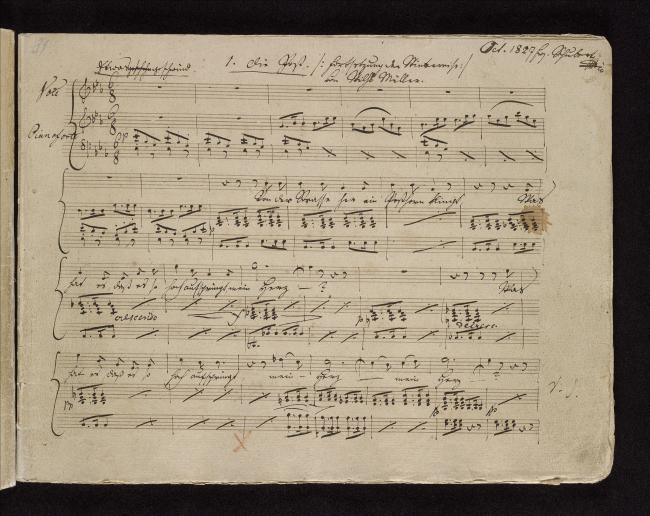 Oct. 1827 Frz. Schubert
1. Die Post. /: Fortsetzung der Winterreise :/
von Wilh. Müller.
Pianoforte
Von der Strasse her ein Posthorn klingt Was
hat es daß es so hoch aufspringt mein Herz – ? Was
crescendo
hat es daß es so hoch aufspringt mein Herz – mein Herz
pp
V. S.